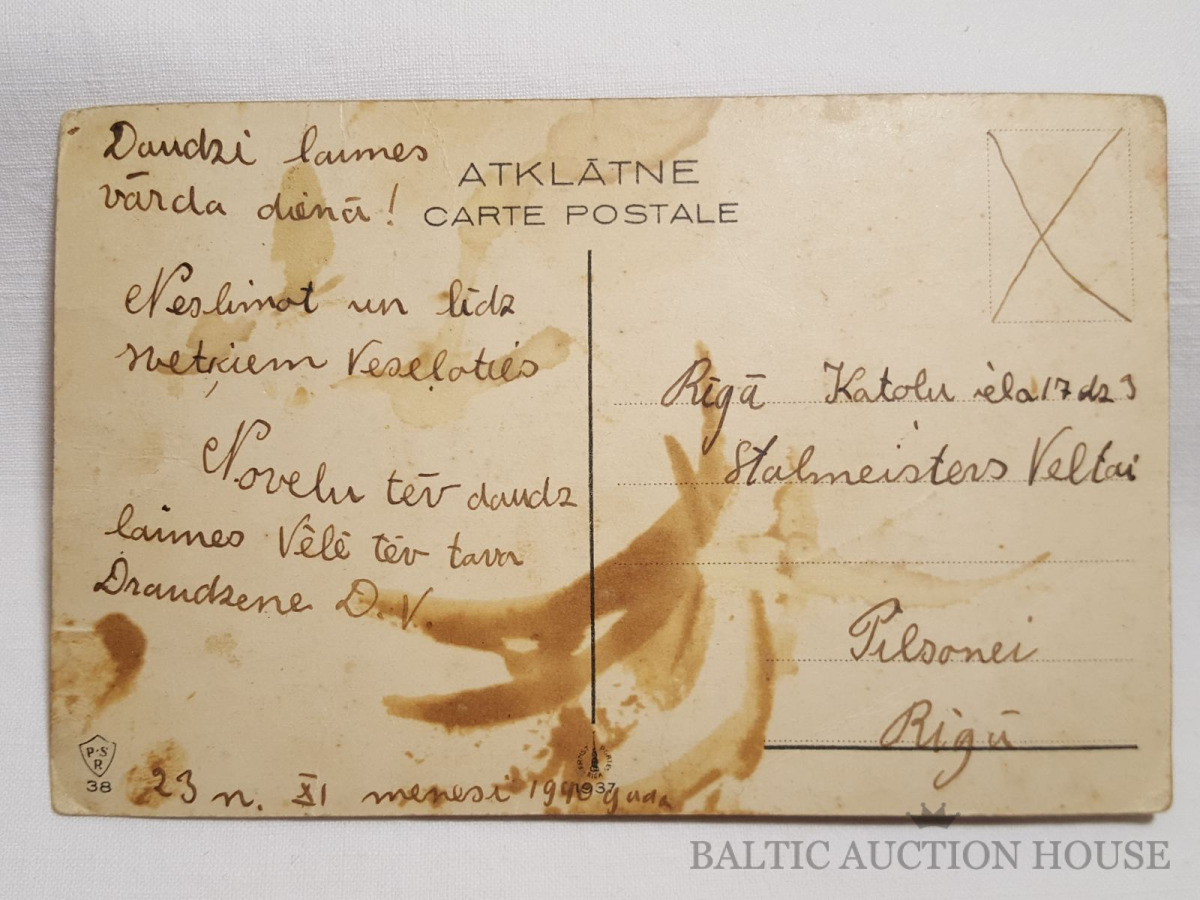 Daudzi laimes
vārda dienā!
ATKLĀTNE
CARTE POSTALE
Neslimot un līdz
svetķiem Veseļoties
Novēlu tēv daudz
laimes Vēlē tēv tava
Draudzene D. V.
P.S
R
38
23 n. XI menesi 1940 gada
1937
Rīgā Katoļu iela 17 dz 3
Stalmeisters Veltai
Pilsonei
Rīgā
BALTIC AUCTION HOUSE